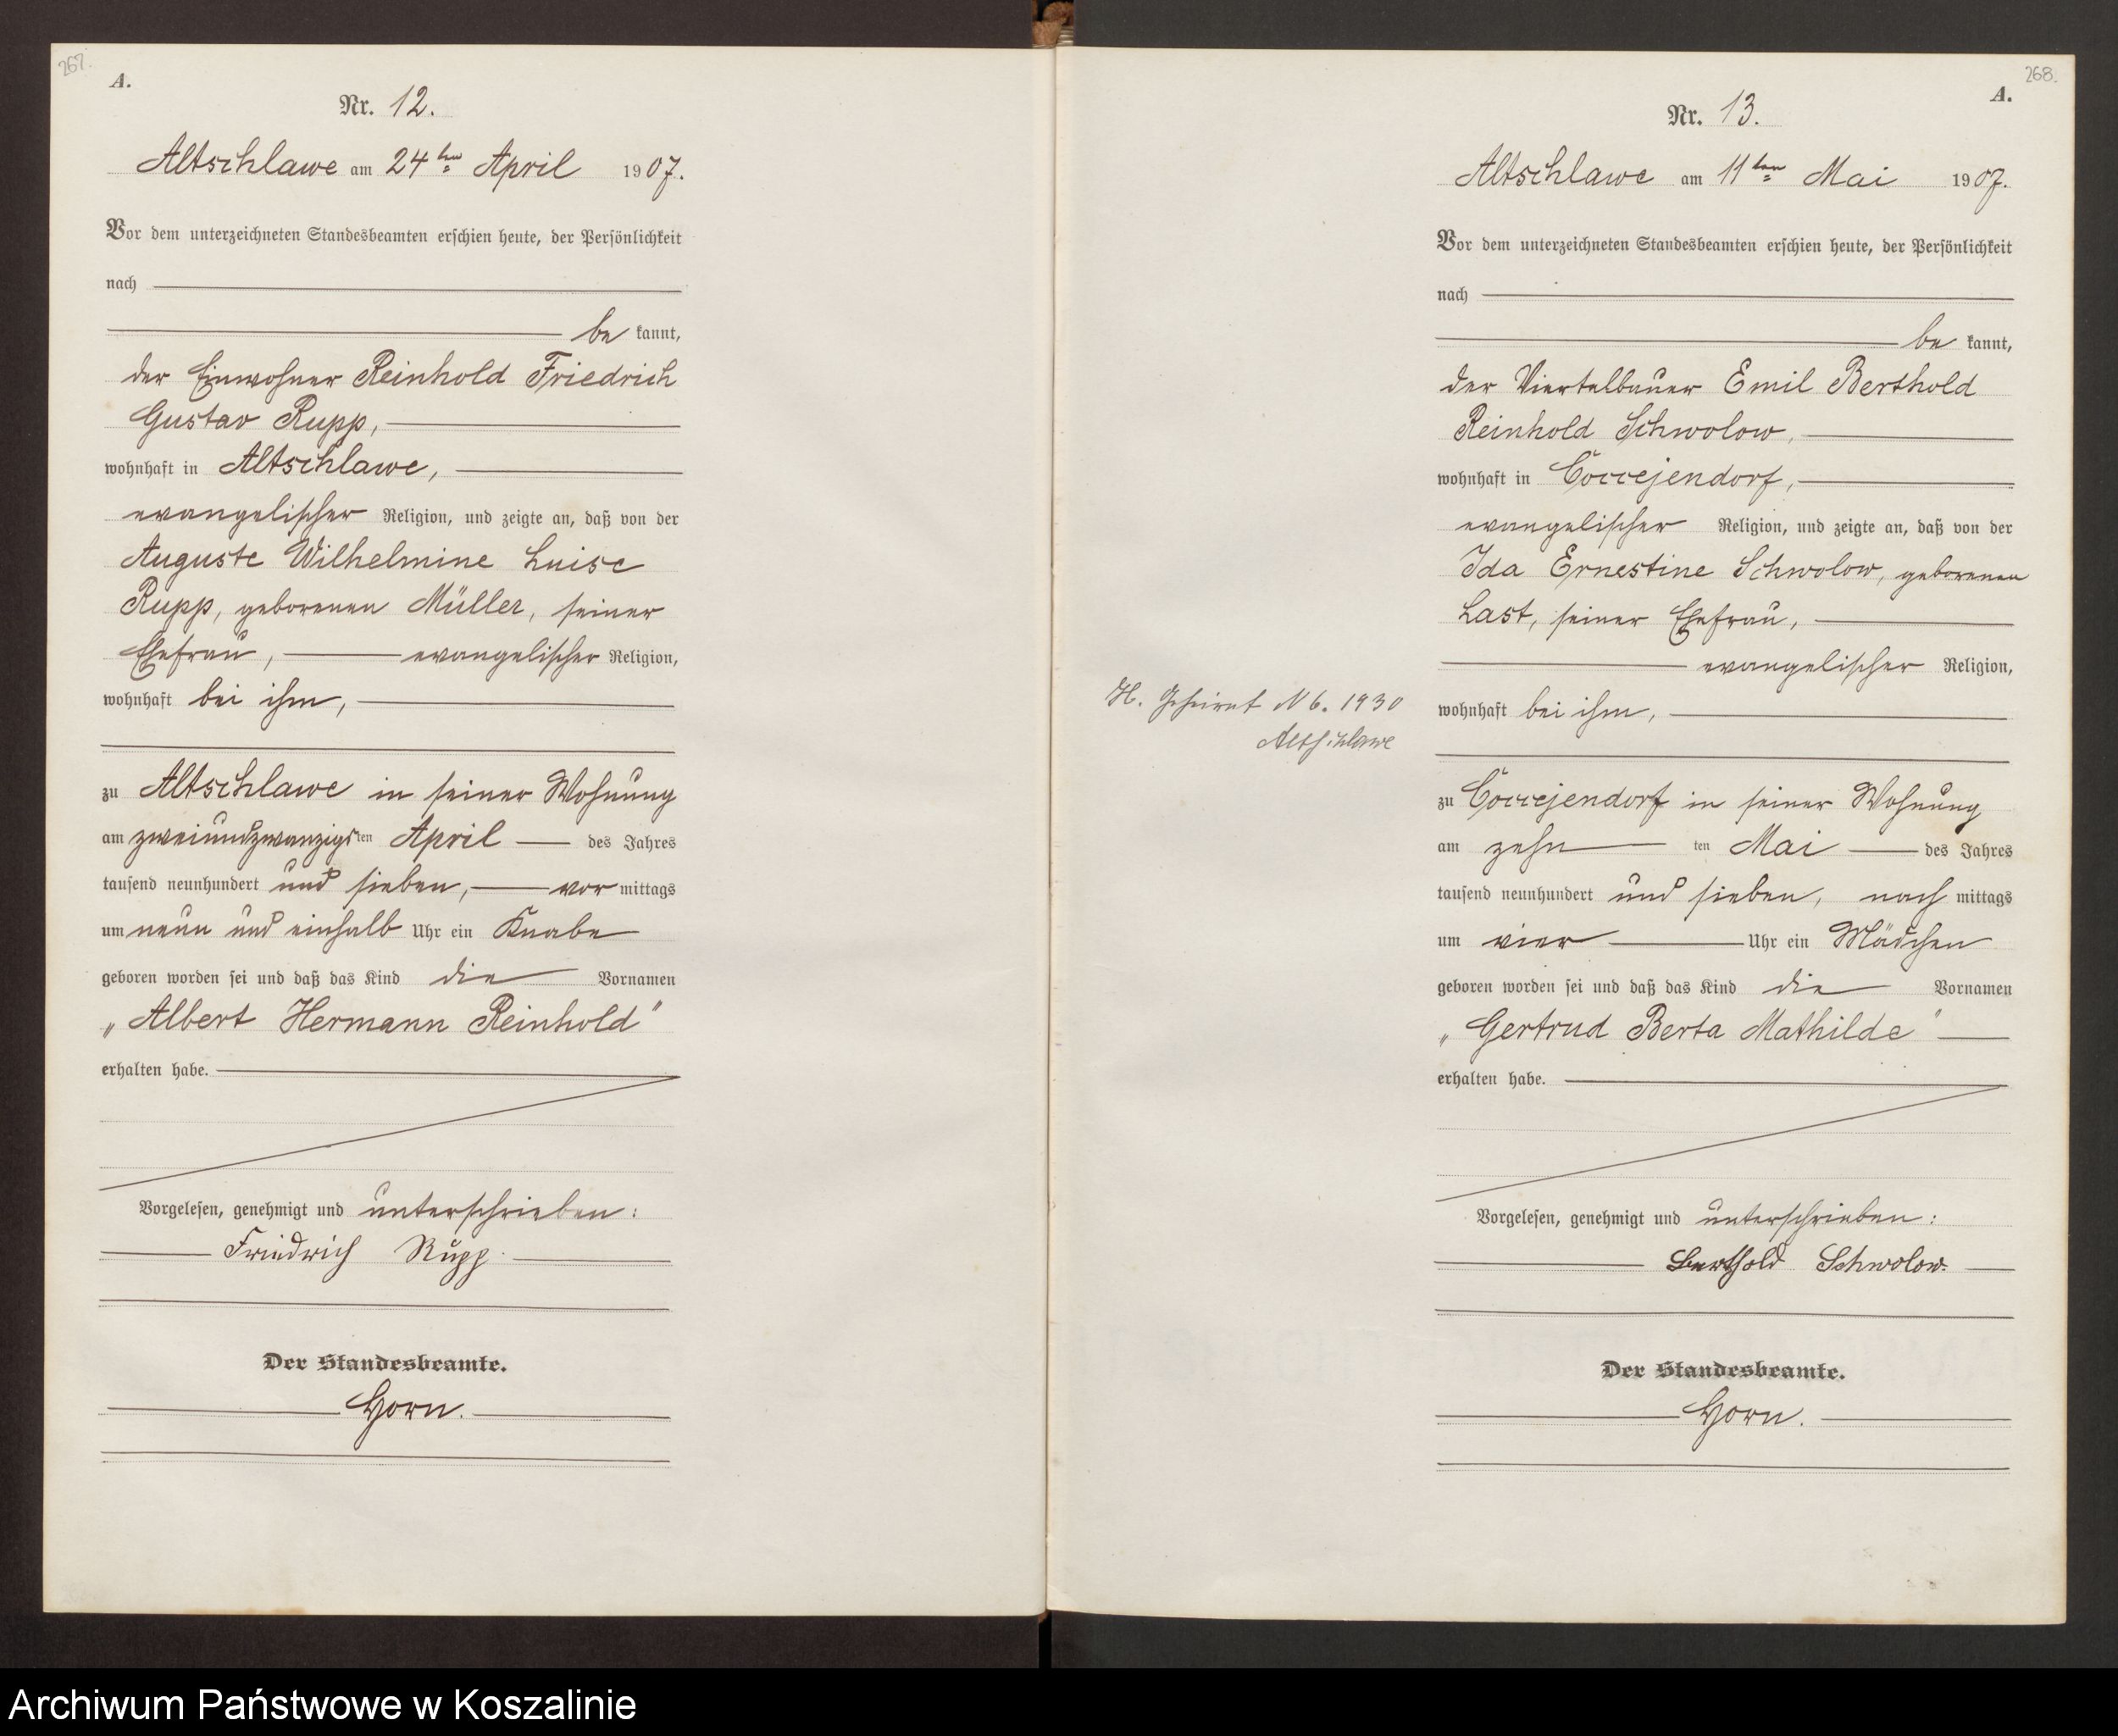 267.
A.
Nr. 12.
Altschlawe am 24ten April 1907.
Vor dem unterzeichneten Standesbeamten erschien heute, der Persönlichkeit
nach
be kannt,
der Einwohner Reinhold Friedrich
Gustav Rupp,
wohnhaft in Altschlawe,
evangelischer Religion, und zeigte an, daß von der
Auguste Wilhelmine Luise
Rupp, geborenen Müller, seiner
Ehefrau, evangelischer Religion,
wohnhaft bei ihm,
zu Altschlawe in seiner Wohnung
am zweiundzwanzigsten April des Jahres
tausend neunhundert und sieben, vor mittags
um neun und einhalb Uhr ein Knabe
geboren worden sei und daß das Kind die Vornamen
„Albert Hermann Reinhold"
erhalten habe.
Vorgelesen, genehmigt und unterschrieben:
Friedrich Rupp.
Der Standesbeamte.
Horn.
268.
A.
Nr. 13.
Altschlawe am 11ten Mai 1907.
Vor dem unterzeichneten Standesbeamten erschien heute, der Persönlichkeit
nach
be kannt,
der Viertelbauer Emil Berthold
Reinhold Schwolow,
wohnhaft in Coccejendorf,
evangelischer Religion, und zeigte an, daß von der
Ida Ernestine Schwolow, geborenen
Last, seiner Ehefrau,
evangelischer Religion,
wohnhaft bei ihm,
zu Coccejendorf in seiner Wohnung
am zehn ten Mai des Jahres
tausend neunhundert und sieben, nach mittags
um vier Uhr ein Mädchen
geboren worden sei und daß das Kind die Vornamen
„Gertrud Berta Mathilde"
erhalten habe.
Vorgelesen, genehmigt und unterschrieben:
Berthold Schwolow.
Der Standesbeamte.
Horn.
H. Geheirat N 6. 1930
Altschlawe
Archiwum Państwowe w Koszalinie